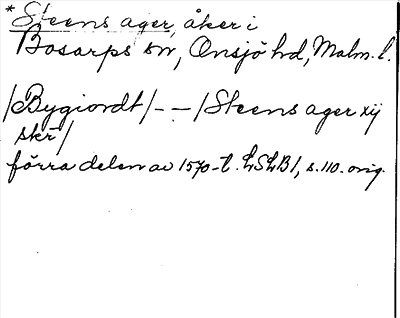 * Steens ager, åker i
Bosarps sn, Onsjö hd, Malm. l.
/Bygiordt/ - - /Steens ager xij
skr/
förra delen av 1570-t. LSLB 1, s. 110. orig.